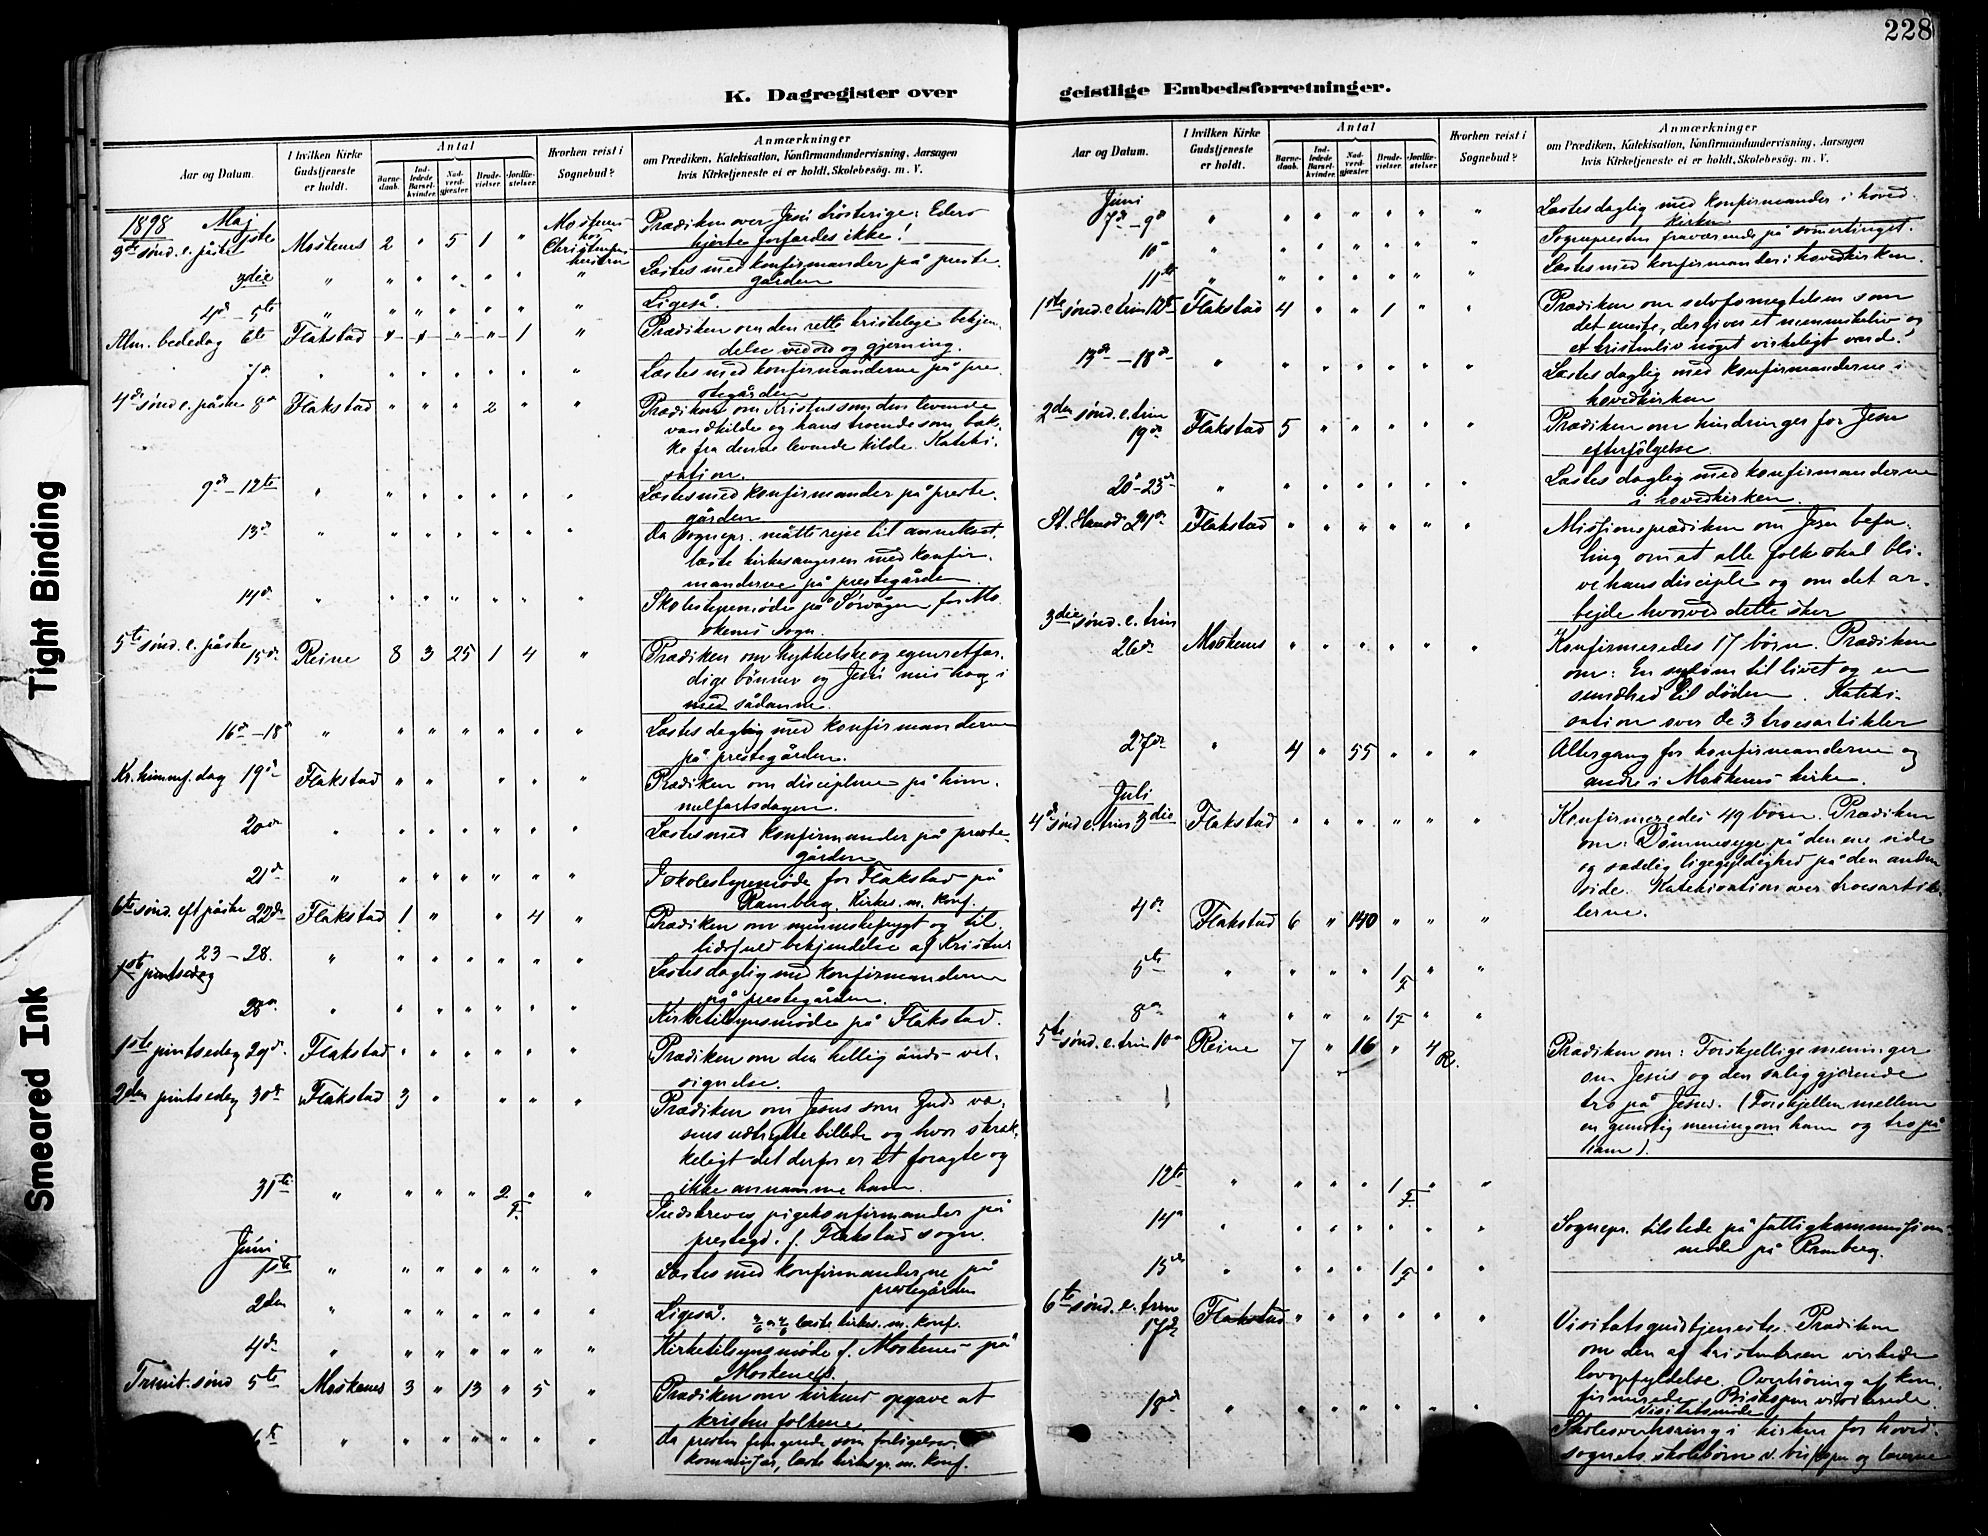 228
Tight Binding
Smeared Ink
K. Dagregister over
Aar og Datum.
I hvilken Kirke Gudstjeneste er holdt.
Antal
Barnedaab.
Indledede Barselkvinder.
Nadverdgjæster
Brudevielser
Jordfæstelser.
Hvorhen reist i Sognebud?
Anmærkninger
om Prædiken, Katekisation, Konfirmandundervisning, Aarsagen
hvis Kirketjeneste ei er holdt, Skolebesög. m. V.
1898 Maj
3die sønd. e. påske 1ste Moskenes 2 " 5 1 " Moskenes hos Christensens hustru Prædiken over Jesu trösterige: Eders
hjerte forfærdes ikke!
3die " " " " " " " Læstes med konfirmander på preste-
gården
4d - 5te " " " " " " " Ligeså.
Alm. bededag 6te Flakstad " " " " 1 " Prædiken om den rette kristelige bekjen-
delse ved ord og gjerning.
7d " " " " " " " Læstes med konfirmanderne på pre
stegården
4de sønd. e. påske 8d Flakstad " " " 2 " " Prædiken om Kristus som den levende
vandkilde og hans troende som bæk-
ke fra denne levende kilde. Kateki-
sation.
9d - 12te " " " " " " " Læstes med konfirmander på preste-
gården
13d " " " " " " " Da sognepr. måtte rejse til annekset,
læste kirkesangeren med konfir-
manderne på prestegården
14d " " " " " " " Skolestyremøde på Sørvågen for Mo-
skenes sogn.
5te sønd. e. påske 15d Reine 8 3 25 1 4 " Prædiken om hykkelske og egenretfær-
dige bønner og Jesu mishag i
med sådanne.
16d - 18d " " " " " " " Læstes daglig med konfirmanderne
på prestegården.
Kr. himmf. dag 19d Flakstad " " " " " Prædiken om disciplene på him-
melfartsdagen.
20de " " " " " " " Læstes med konfirmander på preste-
gården
21d " " " " " " " I skolestyremøde for Flakstad på
Ramberg. Kirkes. m. konf.
6te sønd. eft påske 22de Flakstad 1 " " 4 " Prædiken om menneskefrygt og til
lidsfuld bekjendelse af Kristus
23 - 28. " " " " " " " Læstes daglig med konfirmanderne
1ste pintsedag
på prestegården.
28d " " " " " " " Kirketilsynsmøde på Flakstad.
1ste pintsedag 29d. Flakstad " " " " " " Prædiken om den hellig ånds vel-
signelse.
2den pintsedag 30d Flakstad 3 " " " " Prædiken om Jesus som Guds væ-
sens udtrykte billede og hvor skræk-
keligt det derfor er at foragte og
ikke annamme ham.
31te " " " " 2 F. " " Indskreves pigekonfirmander på
prestegd. f. Flakstad sogn.
Juni
1ste " " " " " " " Læstes med konfirmanderne på
prestegården
2den " " " " " " Ligeså. læste kirkes. m. konf.
4d " " " " " " " Kirketilsynsmøde f. Moskenes på
Moskenes.
Trinit. sønd 5te Moskenes 3 " 13 " 5 " Prædiken om kirkens opgave at
kristne folkene
6te " " " " " " " Da presten fungerede som forligelses-
kommissær, læste kirkesgr. m. konf.
geistlige Embedsforretninger.
Aar og Datum.
I hvilken Kirke Gudstjeneste er holdt.
Antal
Barnedaab.
Indledede Barselkvinder.
Nadverdgjæster
Brudevielser
Jordfæstelser.
Hvorhen reist i Sognebud?
Anmærkninger
om Prædiken, Katekisation, Konfirmandundervisning, Aarsagen
hvis Kirketjeneste ei er holdt, Skolebesög. m. V.
Juni
7d - 9d " " " " " " " Læstes daglig med konfirmander i hoved-
kirken
10d " " " " " " " Sognepresten fraværende på sommertinget.
11te " " " " " " " Læstes med konfirmander i hovedkirken.
1ste sønd. e. trin 12te Flakstad 4 " " 1 " " Prædiken om selvfornegtelsen som
det eneste, der giver et menneskeliv og
et kristenliv noget virkeligt værd.
13d - 18d " " " " " " " Læstes daglig med konfirmanderne i
hovedkirken
2den sønd. e. trin
19d Flakstad 5 " " " " " Prædiken om hindringer for Jesu
efterfölgelse.
20d - 23d " " " " " " " Læstes daglig med konfirmanderne
i hovedkirken.
St. Hansd. 24d Flakstad " " " " " " Missionsprædiken om Jesu befa-
ling om at alle folk skal bli-
ve hans disciple og om det ar-
bejde hvorved dette sker
3die sønd. e. trin
26d Moskenes " " " " " " Konfirmeredes 17 børn. Prædiken
om: En sygdom til livet og en
sundhed til døden. Kateki-
sation over de 3 troesartikler
27d " 4 " 55 " " " Altergang for konfirmanderne og
andre i Moskenes kirke.
Juli
4d sønd. e. trin 3die Flakstad " " " " " " Konfirmeredes 49 børn. Prædiken
om: Dømmesyge på den ene side
og sædelig ligegyldighed på den anden
side. Katekisation over troesartik-
lerne.
4d Flakstad 6 " 140 " " "
5te " " " " 1 F " "
8d " " " " 1 F " "
5te sønd. e. trin 10d Reine 7 " 16 " 4 R. Prædiken om: Forskjellige meninger
om Jesus og den saliggjørende
tro på Jesus. (Forskjellen mellem
en gunstig mening om ham og tro på
ham).
12te " " " " 1 F " "
14d " " " " " " " Sognepr. tilstede på fattigkommissions-
møde på Ramberg.
15d " " " " 1 F " "
6te sønd. e. trin
17d Flakstad " " " " " " Visitatsgudstjeneste. Prædiken
om den af kristentroen virkede
lovopfyldelse. Overhöring af kon-
firmerede. Biskopen visiterede.
Visitatsmøde
18d " " " " " " " Skoleoverhøring i kirken for hoved-
sognets skolebørn v. bispen og lærerne